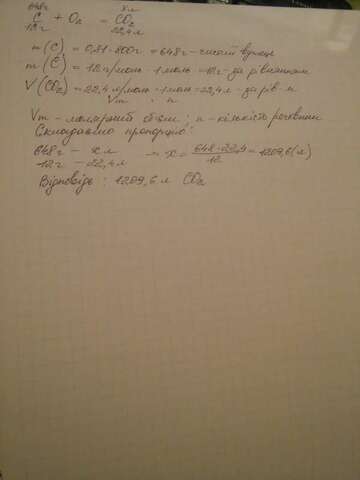 648г x л
C + O₂ = CO₂
12 г 22,4 л
m(C) = 0,81 · 800г = 648г - чистий вуглець
m(C) = 12 г/моль · 1 моль = 12г - за рівнянням
V(CO₂) = 22,4 л/моль · 1 моль = 22,4 л - за рів-м
Vm · n
Vm - молярний об'єм ; n - кількість речовини
Складаємо пропорцію:
648г - x л => x = 648 · 22,4 / 12 = 1209,6 (л)
12 г - 22,4 л
Відповідь : 1209,6 л CO₂